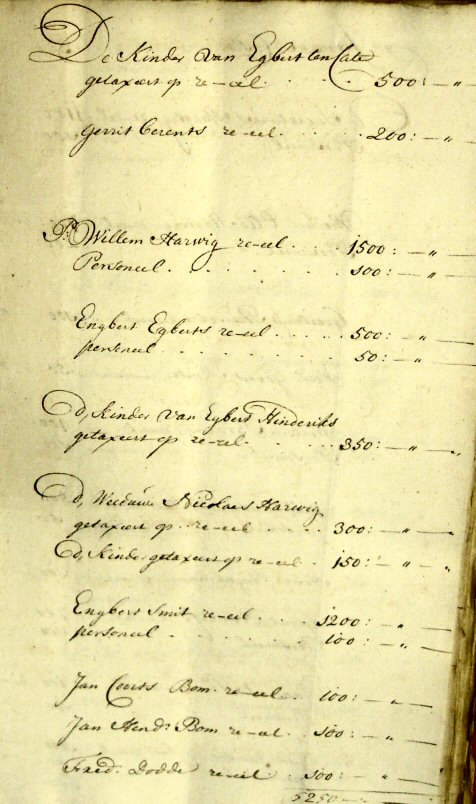 De Kinder van Egbert ten Cate
getaxeert op re-eel . . . 500: — " —
Gerrit Berents re-eel . . . . 200: — " —
Pr. Willem Harwig re-eel . . 1500: — " —
Personeel . . . . . . 100: — " —
Engbert Egberts re-eel . . . . 500: — " —
personeel . . . . . . . 50: — " —
d, Kinder van Egbert Hinderiks
getaxeert op re-eel . . . . 350: — " —
d, Weduwe Nicolaas Harwig
getaxeert op re-eel . . . . 300: — " —
d, Kinder getaxeert op re-eel . 150: — " —
Engbert Smit re-eel . . . . 1200: — " —
personeel . . . . . . . 100: — " —
Jan Coerts Bom re-eel . . 100: — " —
Jan Hendr: Bom re-eel . . 100: — " —
Fred: Dodde re-eel . . 100: — " —
5250